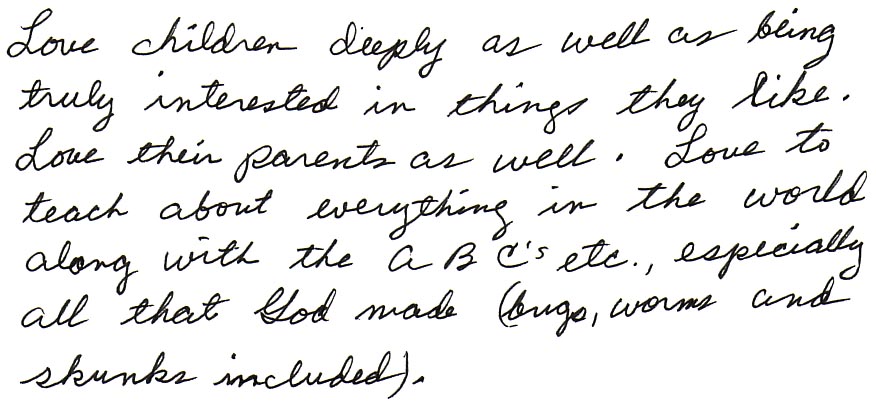 Love children deeply as well as being
truly interested in things they like.
Love their parents as well. Love to
teach about everything in the world
along with the A B C's etc., especially
all that God made (bugs, worms and
skunks included).